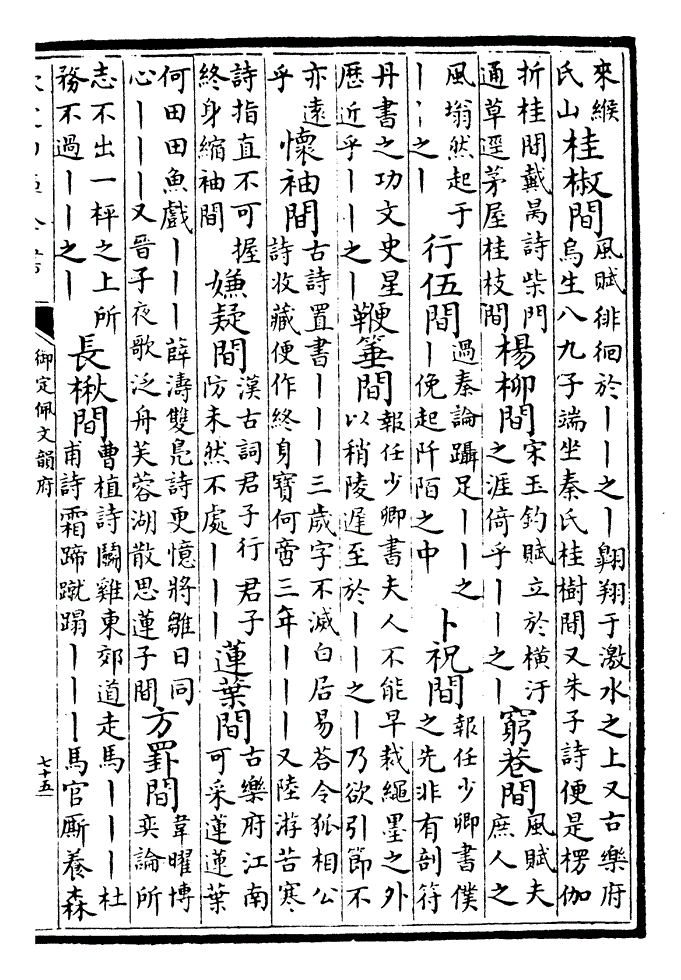 來緱
氏山
桂椒間
風賦徘徊於丨丨之丨翱翔于激水之上又古樂府
烏生八九子端坐秦氏桂樹間又朱子詩便是楞伽
折桂間戴昺詩柴門
通草逕茅屋桂枝間
楊柳間
宋玉釣賦立於橫汙
之涯倚乎丨丨之丨
窮巷間
風賦夫
庶人之
風塕然起于
丨丨之丨
行伍間
過秦論躡足丨丨之
丨俛起阡陌之中
卜祝間
報任少卿書僕
之先非有剖符
丹書之功文史星
厯近乎丨丨之丨
鞭箠間
報任少卿書夫人不能早裁繩墨之外
以稍陵遲至於丨丨之丨乃欲引節不
亦遠
乎
懷袖間
古詩置書丨丨丨三歲字不滅白居易答令狐相公
詩收藏便作終身寶何啻三年丨丨丨又陸游苦寒
詩指直不可握
終身縮袖間
嫌疑間
漢古詞君子行君子
防未然不處丨丨丨
蓮葉間
古樂府江南
可采蓮蓮葉
何田田魚戲丨丨丨薛濤雙鳧詩更憶將雛日同
心丨丨丨又晉子夜歌泛舟芙蓉湖散思蓮子間
方罫間
韋曜博
奕論所
志不出一枰之上所
務不過丨丨之丨
長楸間
曹植詩鬭雞東郊道走馬丨丨丨杜
甫詩霜蹄蹴蹋丨丨丨馬官厮養森
御定佩文韻府
七十五